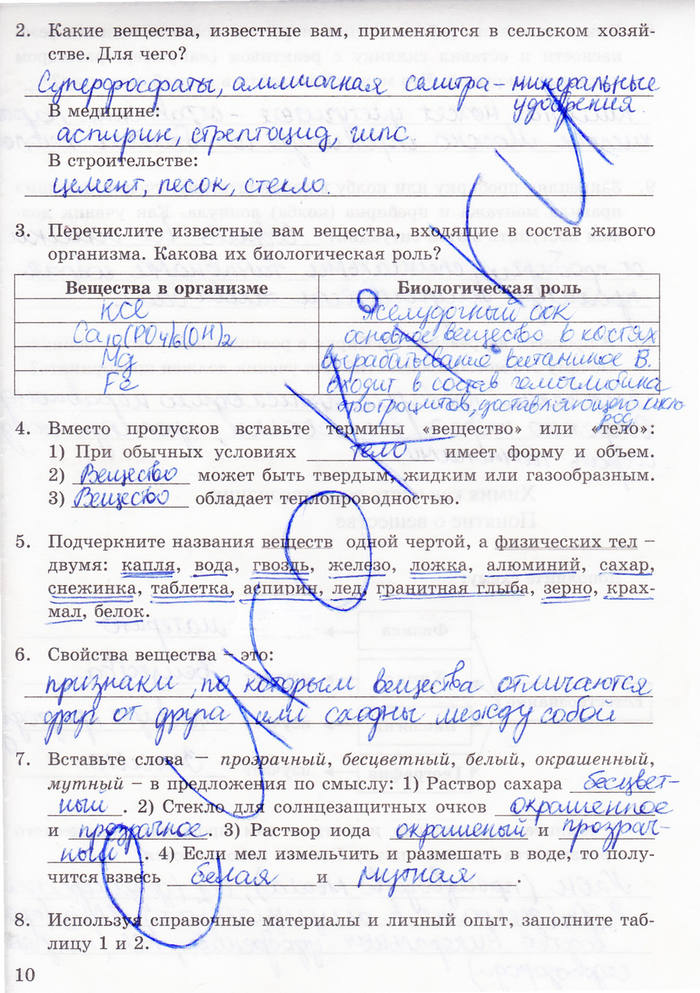 2. Какие вещества, известные вам, применяются в сельском хозяй-
стве. Для чего?
Суперфосфаты, аммиачная селитра – минеральные
удобрения.
В медицине:
аспирин, стрептоцид, гипс.
В строительстве:
цемент, песок, стекло.
3. Перечислите известные вам вещества, входящие в состав живого
организма. Какова их биологическая роль?
Вещества в организме Биологическая роль
HCl Желудочный сок
Ca10(PO4)6(OH)2 основное вещество в костях
Mg вырабатывание витаминов В.
Fe входит в состав гемоглобина
эротроцитов, доставляющего кисло
род
4. Вместо пропусков вставьте термины «вещество» или «тело»:
1) При обычных условиях тело имеет форму и объем.
2) Вещество может быть твердым, жидким или газообразным.
3) Вещество обладает теплопроводностью.
5. Подчеркните названия веществ одной чертой, а физических тел –
двумя: капля, вода, гвоздь, железо, ложка, алюминий, сахар,
снежинка, таблетка, аспирин, лед, гранитная глыба, зерно, крах-
мал, белок.
6. Свойства вещества – это:
признаки, по которым вещества отличаются
друг от друга или сходны между собой
7. Вставьте слова – прозрачный, бесцветный, белый, окрашенный,
мутный – в предложения по смыслу: 1) Раствор сахара бесцвет-
ный . 2) Стекло для солнцезащитных очков окрашенное
и прозрачное. 3) Раствор иода окрашеный и прозрач-
ный . 4) Если мел измельчить и размешать в воде, то полу-
чится взвесь белая и мутная .
8. Используя справочные материалы и личный опыт, заполните таб-
лицу 1 и 2.
10